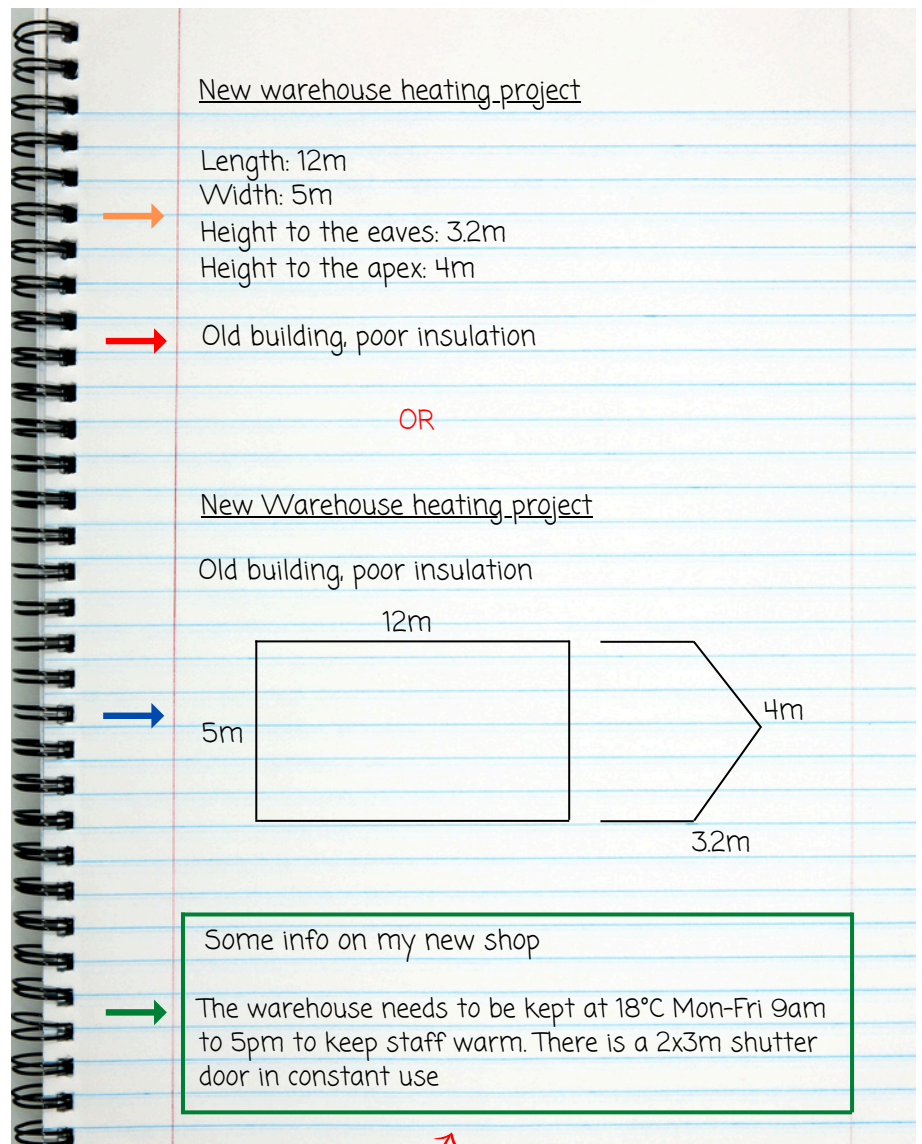 New warehouse heating project
Length: 12m
Width: 5m
Height to the eaves: 3.2m
Height to the apex: 4m
Old building, poor insulation
OR
New Warehouse heating project
Old building, poor insulation
12m
5m
4m
3.2m
Some info on my new shop
The warehouse needs to be kept at 18°C Mon-Fri 9am
to 5pm to keep staff warm. There is a 2x3m shutter
door in constant use